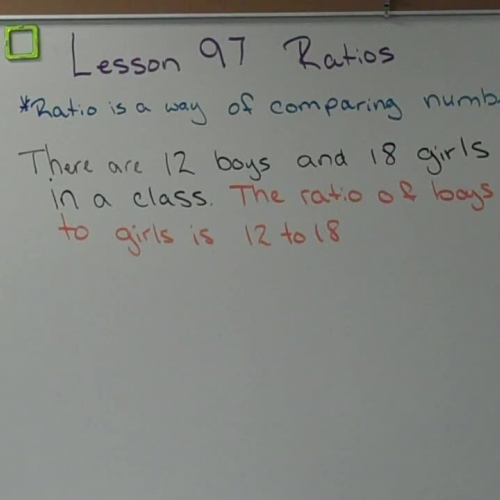 Lesson 97 Ratios
*Ratio is a way of comparing numb
There are 12 boys and 18 girls
in a class. The ratio of boys
to girls is 12 to 18